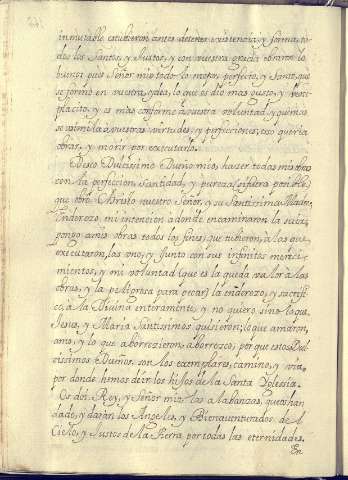 inmutable estubieron antes detener existencia, y forma, to
dos los Santos, y Justos, y con vuestra gracia obraron lo
bueno; pues Señor mio todo lo mejor, perfecto, y Santo, que
se formó en vuestra ydea, lo que es dio mas gusto, y
placito, y es mas conforme à vuestra voluntad, y que mas
se asimila à vuestras virtudes, y perfecciones, esso queria
obrar, y morir por executarlo.
Deseo Dulcissimo Dueño mio, haser todas mis obras
con la perfeccion, Santidad, y pureza (si fuera posible)
que obró Christo nuestro Señor, y su Santissima Madre,
Enderezo mi intencion adonde encaminaron la suia,
pongo à mis obras todos los fines, que tubieron, à los que
executaron, las ono, y junto con sus infinitos mereci-
mientos, y mi voluntad (que es la que da valor à las
obras, y la peligrosa para pecar) la enderezo, y sacrifi-
co, à la Divina enteramente, y no quiero sino loque
Jesus, y Maria Santissimos quisieron; lo que amaron,
amo, y lo que aborrezieron, aborrezco; porque estos Dul-
cissimos Dueños son los exemplares, camino, y via,
por donde hemos de ir los hijos de la Santa Yglesia.
Os doi Rey, y Señor mio las alabanzas, que os han
dado, y daràn los Angeles, y Bienaventurados del
Cielo, y Justos de la tierra por todas las eternidades.
En